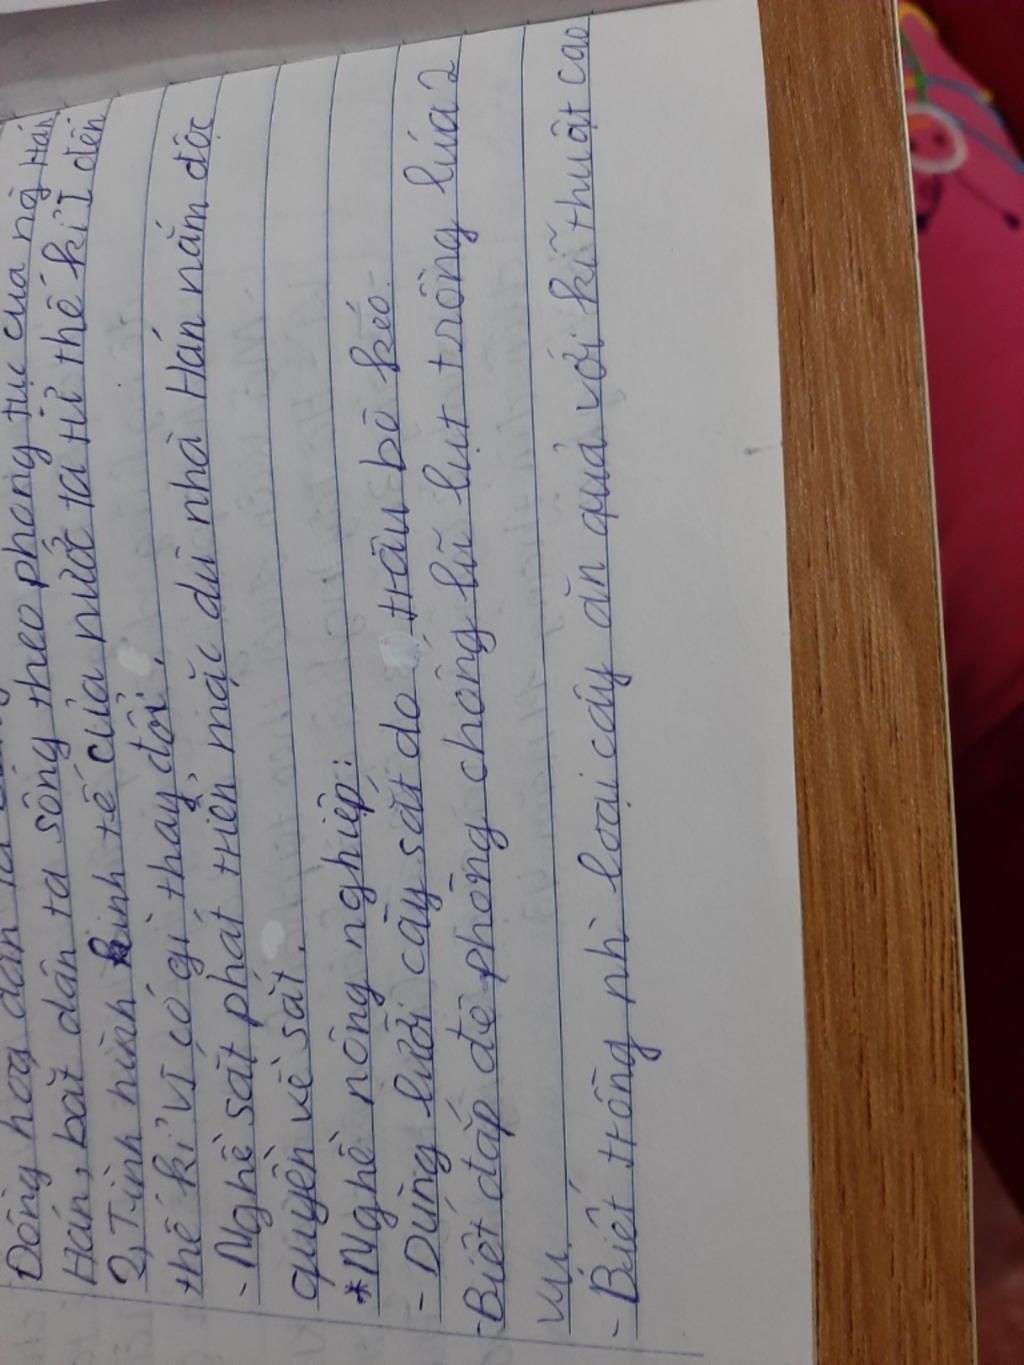 Đồng hoá dân ta
Hán, bắt dân ta sống theo phong tục của ng Hán
2, Tình hình kinh tế của nước ta từ thế kỉ I đến
thế kỉ VI có gì thay đổi.
- Nghề sắt phát triển mặc dù nhà Hán nắm độc
quyền về sắt.
* Nghề nông nghiệp:
- Dùng lưỡi cày sắt do trâu bò kéo.
- Biết đắp đê phòng chống lũ lụt trồng lúa 2
vụ.
- Biết trồng nhì loại cây ăn quả với kĩ thuật cao